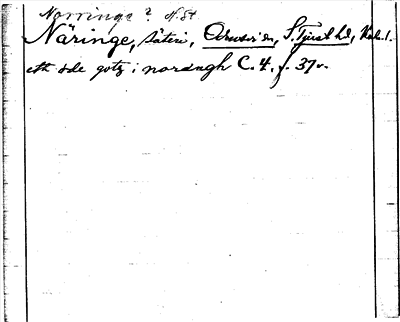 Norringe? N. St
Näringe, säteri, S. Tjust hd, Kalm. l.
ett öde gotz i nordngh C. 4. f. 37 v.